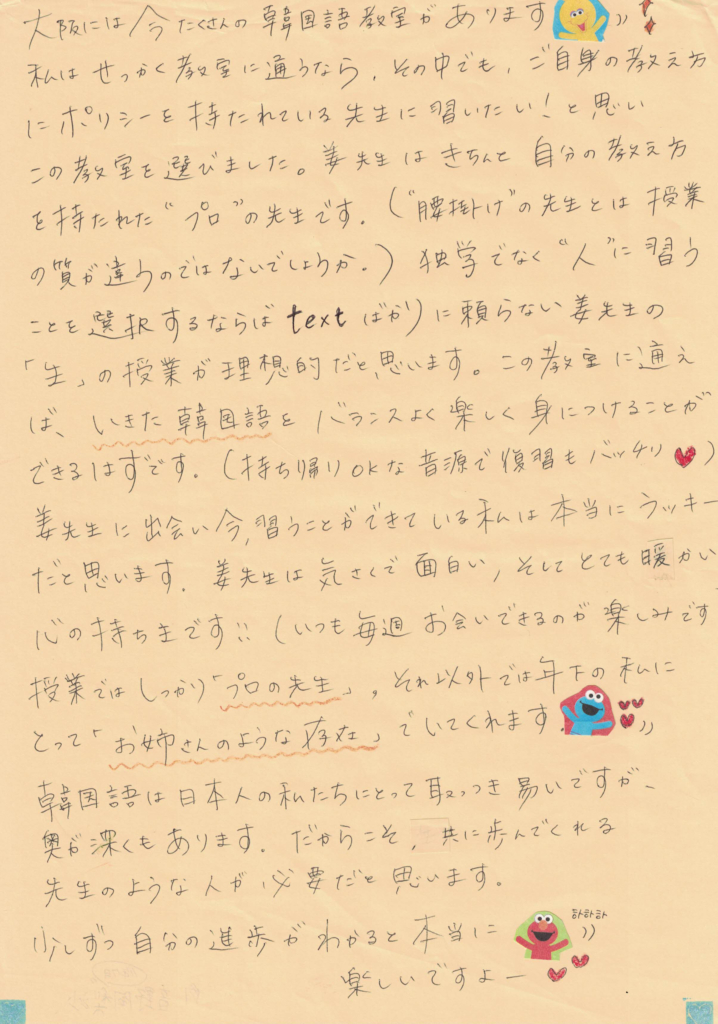 大阪には今たくさんの韓国語教室があります
私はせっかく教室に通うなら、その中でも、ご自身の教え方
にポリシーを持たれている先生に習いたい！と思い
この教室を選びました。姜先生はきちんと自分の教え方
を持たれた“プロ”の先生です.(“腰掛け”の先生とは授業
の質が違うのではないでしょうか.) 独学でなく“人”に習う
ことを選択するならばtextばかりに頼らない姜先生の
「生」の授業が理想的だと思います。この教室に通え
ば、いきた韓国語をバランスよく楽しく身につけることが
できるはずです.(持ち帰りOKな音源で復習もバッチリ♥)
姜先生に出会い今,習うことができている私は本当にラッキー
だと思います. 姜先生は気さくで面白い,そしてとても暖かい
心の持ち主です!!(いつも毎週お会いできるのが楽しみです
授業ではしっかり「プロの先生」,それ以外では年下の私に
とって「お姉さんのような存在」でいてくれます
韓国語は日本人の私たちにとって取っつき易いですが、
奥が深くもあります. だからこそ,共に歩んでくれる
先生のような人が必要だと思います。
少しずつ自分の進歩がわかると本当に
하하하
楽しいですよー